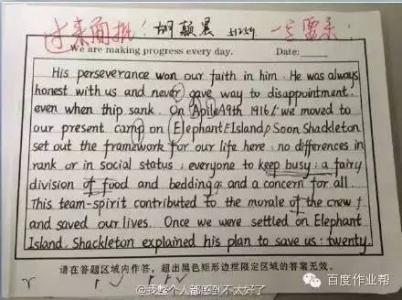 过来面批！胡颖晨 51259 一定要来！
We are making progress every day. Date:
His perseverance won our faith in him. He was always
honest with us and never gave way to disappointment
even when thip sank. On Apile 19th 1916, we moved to
our present camp on Elephant Island. Soon Shackleton
set out the framework for our life here: no differences in
rank or in social status; everyone to keep busy; a fairy
division of food and bedding; and a concern for all.
This team-spirit contributed to the murale of the crew
and saved our lives. Once we were settled on Elephant
Island, Shackleton explained his plan to save us: twenty
请在答题区域内作答，超出黑色矩形边框限定区域的答案无效。
@我整个人都感到不太好了
百度作业帮